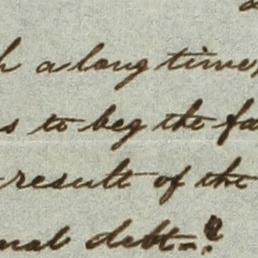 a long time,
to beg the
result of the
debt-?